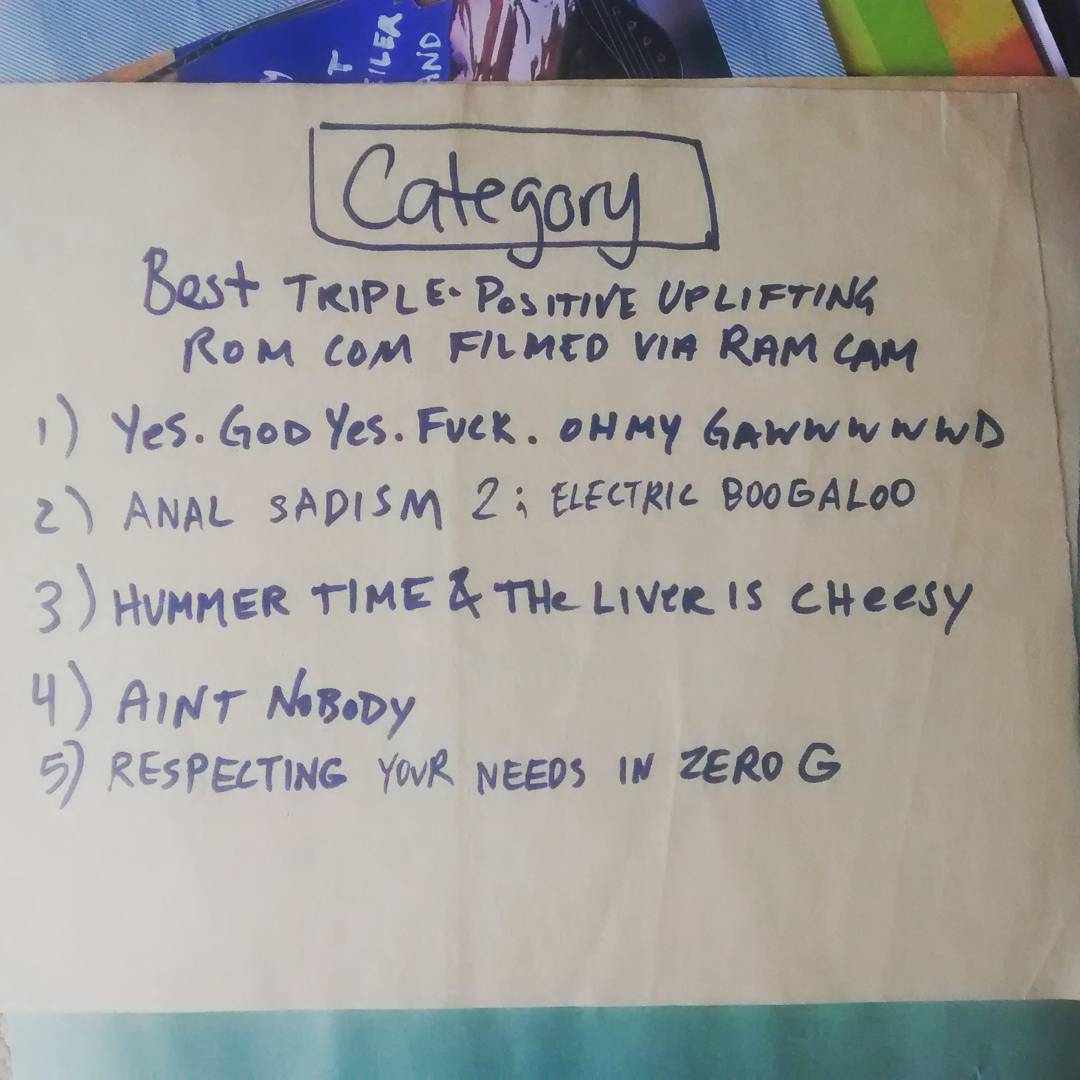 T
EILER
AND
Category
Best TRIPLE-POSITIVE UPLIFTING
ROM COM FILMED VIA RAM CAM
1) YES. GOD YES. FUCK. OH MY GAWWWWWD
2) ANAL SADISM 2: ELECTRIC BOOGALOO
3) HUMMER TIME & THE LIVER IS CHEESY
4) AINT NOBODY
5) RESPECTING YOUR NEEDS IN ZERO G